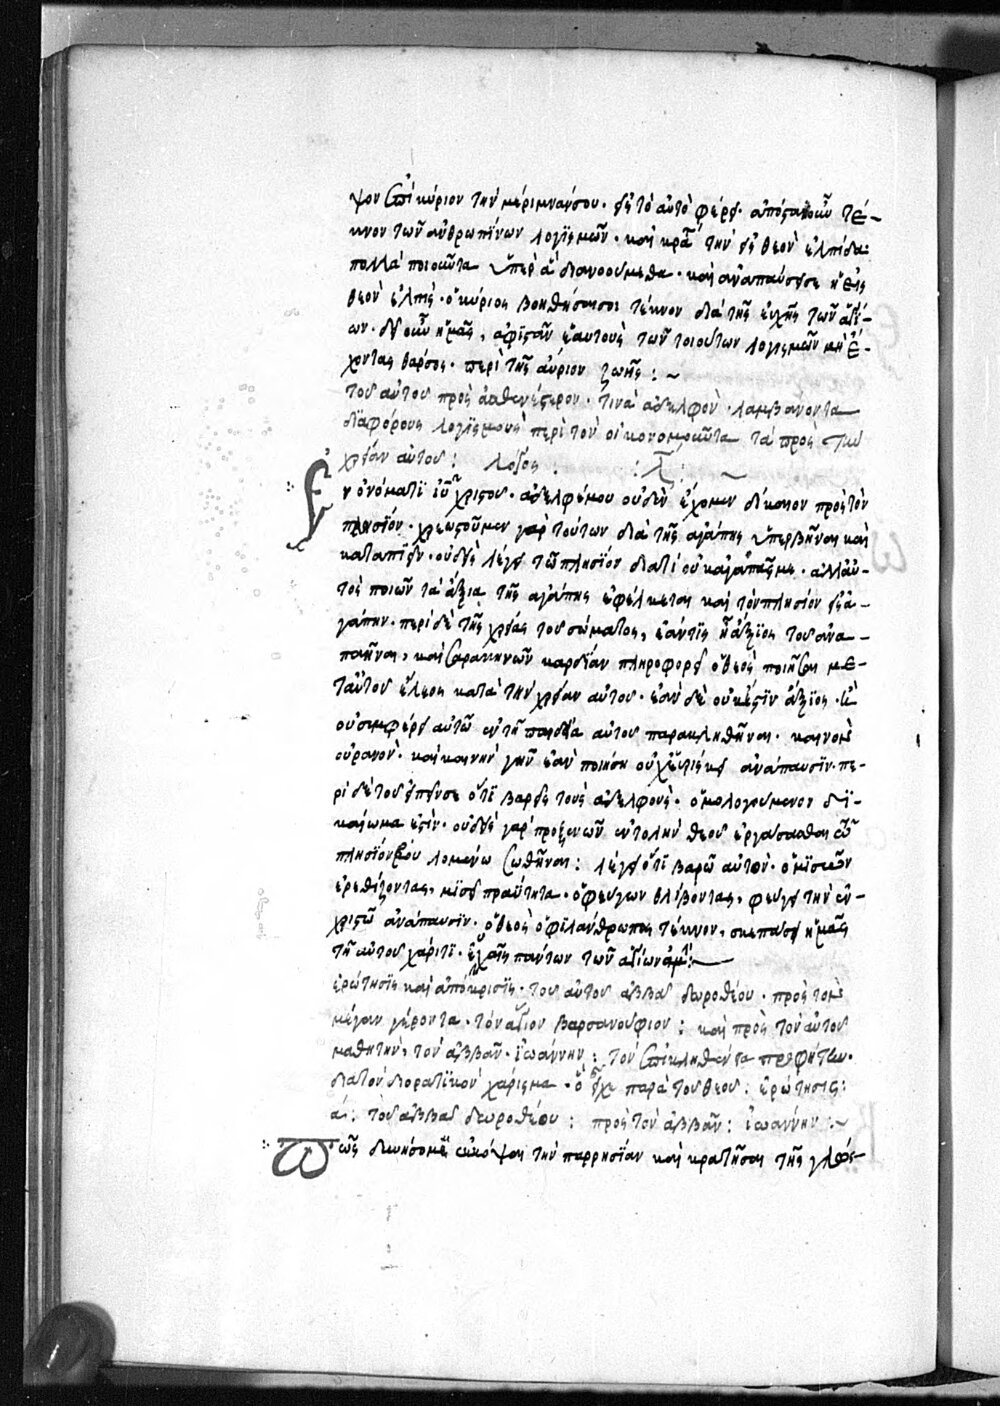 ψον ἐπὶ κύριον τὴν μέριμνάν σου· εἰς τὸ αὐτὸ φέρει· ἀπόστα οὖν τέ-
κνον τῶν ἀνθρωπΐνων λογϊσμῶν· καὶ κρά τὴν εἰς θεὸν ἐλπίδα·
πολλὰ ποιοῦντα ὑπὲρ ἃ διανοούμεθα· καὶ ἀναπαύσει σε ἡ εἰς
θεὸν ἐλπίς· ὁ κύριος βοηθήσει σοι τέκνον διὰ τῆς εὐχῆς τῶν ἁγί-
ων· δεῖ οὖν ἡμᾶς, ἀφϊστᾶν ἑαυτοὺς τῶν τοιούτων λογισμῶν μὴ ἔ-
χοντας θάρσος· περὶ τῆς αὔριον ζωῆς :~
τοῦ αὐτοῦ πρὸς ἀσθενέστερον· τινὰ ἀδελφὸν· λαμβάνοντα
διαφόρους λογϊσμοὺς περὶ τὸν οἰκονομοῦντα τὰ πρὸς τὴν
χρείαν αὐτοῦ : λόγος :
Ἐν ὀνόματϊ ἰῦ χριστοῦ· ἀδελφέ μου οὐδὲν ἔχομεν δίκαιον πρὸς τὸν
πλησΐον· χρεωστοῦμεν γὰρ τοῦτον διὰ τῆς ἀγάπης ὑπερβῆναι καὶ
καταπιεῖν· οὐδεὶς λέγει τῶ πλησΐον διατί οὐκ ἀγαπᾶς με· ἀλλ' αὐ-
τὸς ποιῶν τὰ ἄξια τῆς ἀγάπης ἐφέλκεται καὶ τὸν πλησίον εἰς ἀ-
γάπην· περὶ δὲ τῆς χρείας τοῦ σώματος, ἐάν τϊς ἦ ἄξϊος τοῦ ἀνα-
παῆναι, καὶ σαρακηνῶν καρδΐαν πληροφορεῖ ὁ θεὸς ποιῆσαι με-
τ' αὐτοῦ ἔλεος κατὰ τὴν χρείαν αὐτοῦ· ἐὰν δὲ οὐκ ἔστϊν ἄξϊος· ἢ
οὐ συμφέρει αὐτῶ ἐν τῆ παιδεία αὐτοῦ παρακληθῆναι· καινὸν
οὐρανὸν· καὶ καινὴν γῆν ἐὰν ποιήση οὐχ εὑρίσκει ἀνάπαυσϊν· πε-
ρὶ δὲ τοῦ εἰπεῖν σε ὅτϊ βαρεῖς τοὺς ἀδελφούς· ὁμολογούμενον δϊ-
καίωμα ἐστὶν· οὐδεὶς γὰρ προξενῶν ἐντολὴν θεοῦ ἐργάσασθαι
πλησΐον βουλομένω σωθῆναι : λέγει ὅτϊ βαρῶ αὐτόν· ὁ μϊσῶν
ἐρεθίζοντας, μϊσεῖ πραότητα· ὁ φεύγων θλίβοντας, φεύγει τὴν ἐν
χριστῶ ἀνάπαυσϊν· ὁ θεὸς ὁ φϊλάνθρωπος τέκνον, σκεπάσει ἡμᾶς
τῆ αὐτοῦ χάριτϊ· εὐχαῖς πάντων τῶν ἁγίων ἀμήν:
ἐρώτησϊς καὶ ἀπόκρισϊς· τοῦ αὐτοῦ ἀββᾶ δωροθέου· πρὸς τὸν
μέγαν γέροντα· τὸν ἅγιον βαρσανούφιον : καὶ πρὸς τὸν αὐτοῦ
μαθητὴν, τὸν ἀββᾶν· ἰωάννην : τὸν ἐπικληθέντα προφήτην·
διὰ τὸν διορατϊκὸν χάρισμα· ὃ εἶχε παρὰ τοῦ θεοῦ : ἐρώτησις:
α΄: τοῦ ἀββᾶ δωροθέου : πρὸς τὸν ἀββᾶν : ἰωάννην :~
Πῶς δυνήσομαι ἐκκόψαι τὴν παρρησΐαν καὶ κρατῆσαι τῆς γλώσ-